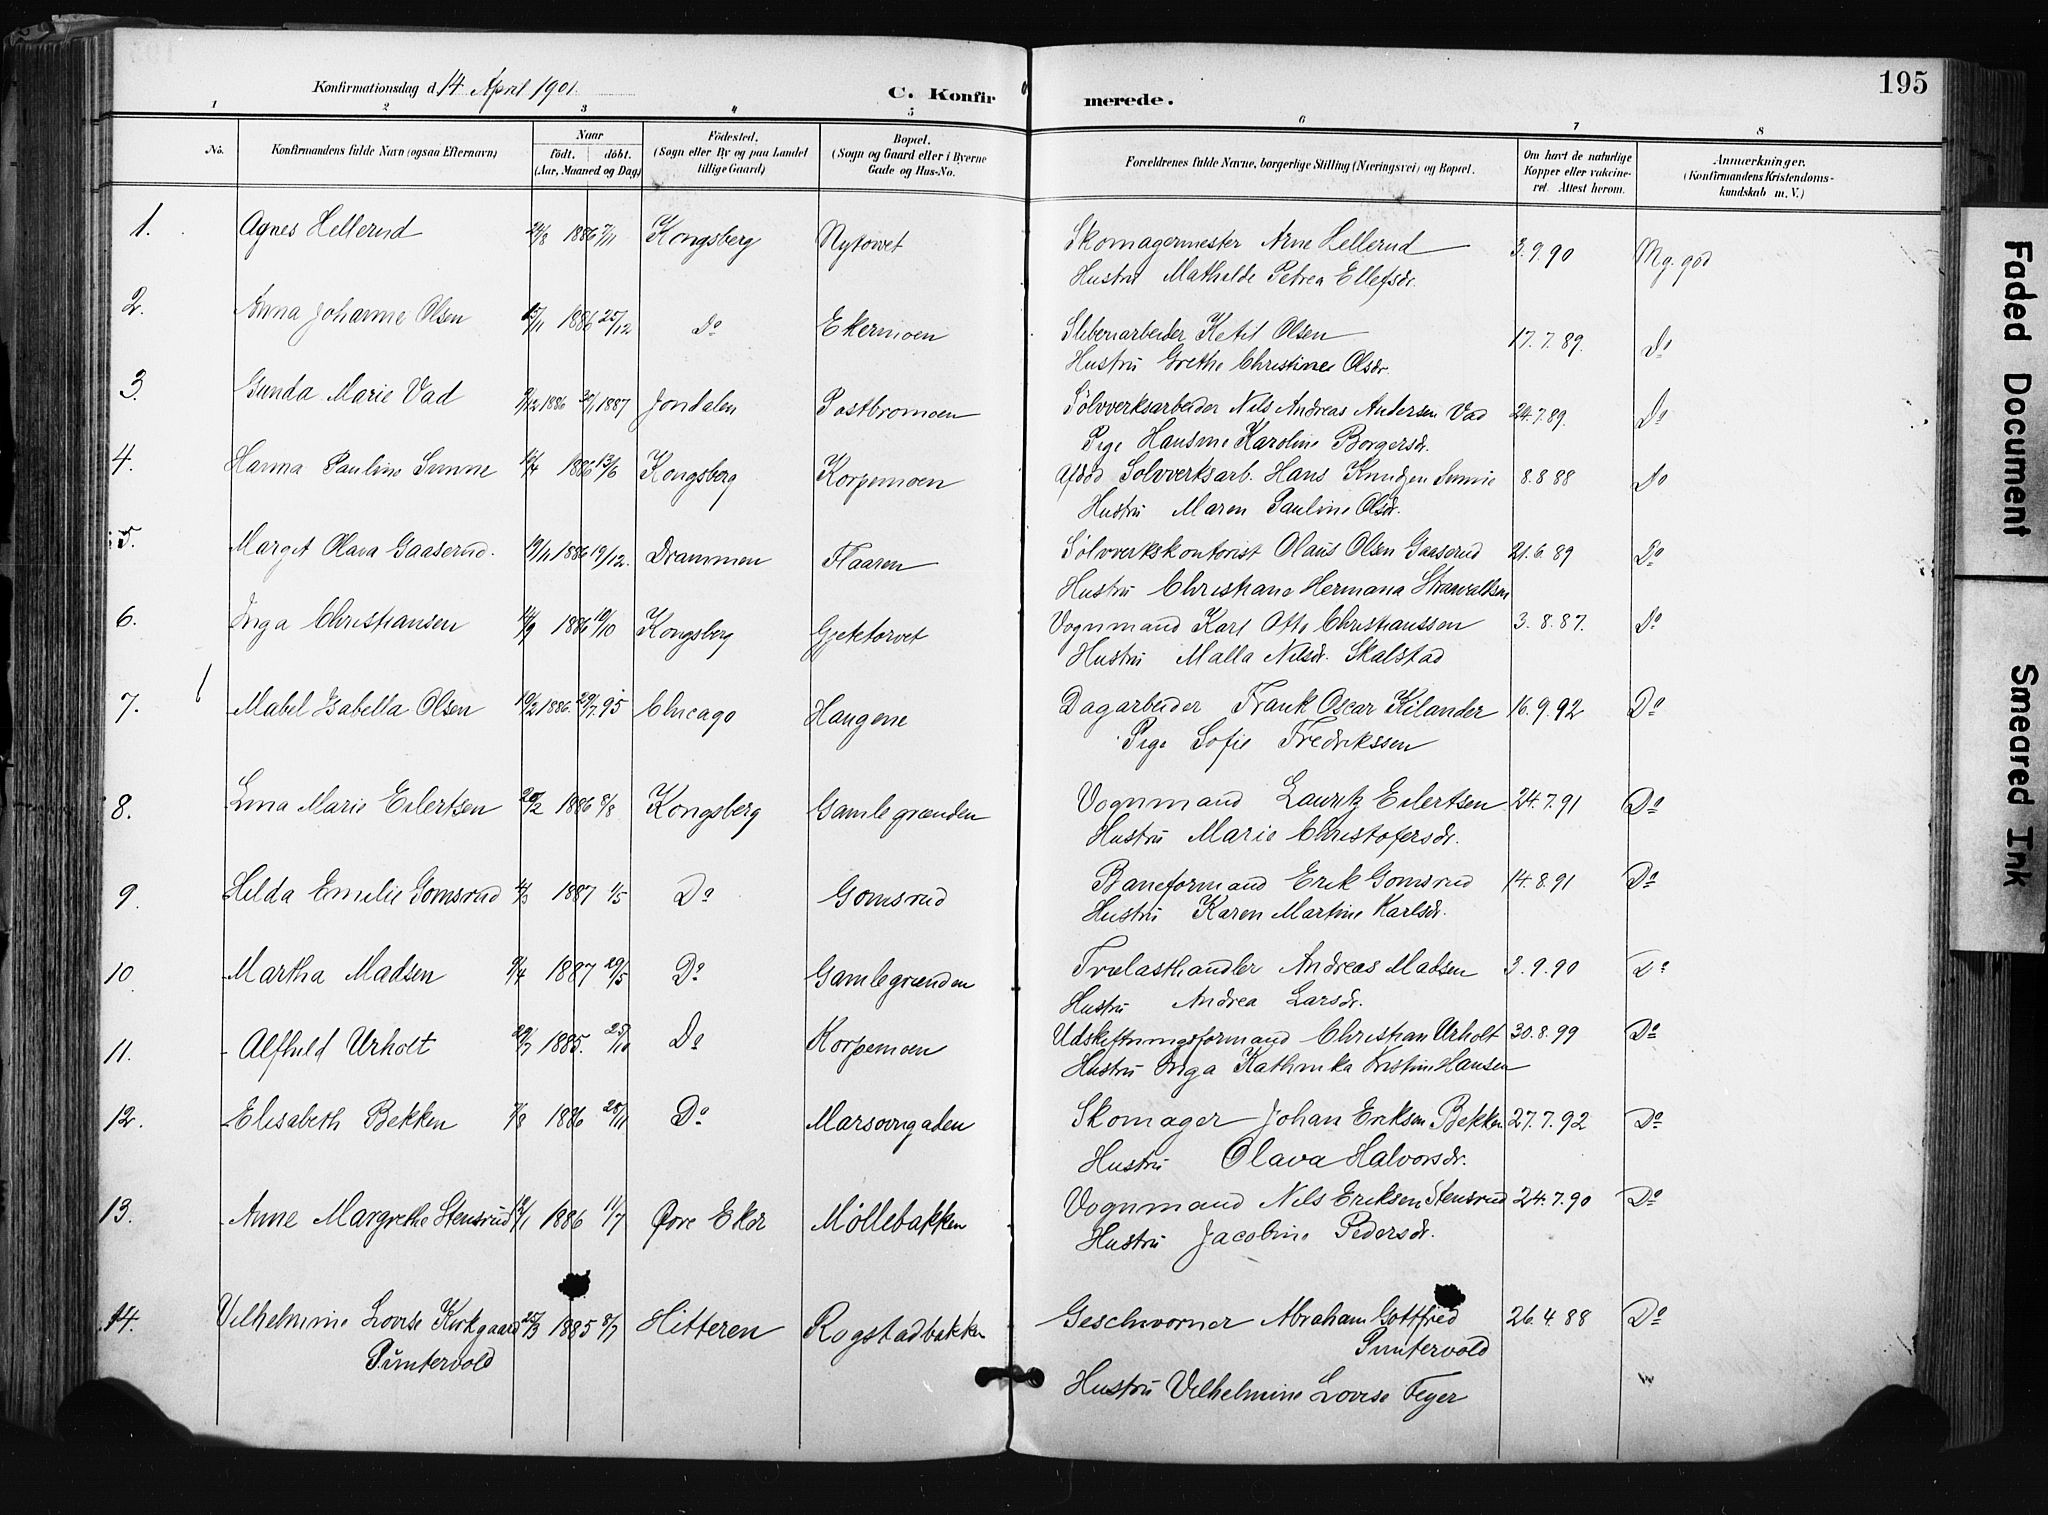 195
Konfirmationsdag d. 14 April 1901.
C. Konfirmerede.
1 2 3 4 5 6 7 8
No. Konfirmandens fulde Navn (ogsaa Efternavn) Naar födt. döbt. (Aar, Maaned og Dag) Födested. (Sogn eller By og paa Landet tillige Gaard) Bopæl. (Sogn og Gaard eller i Byerne Gade og Hus-No. Forældrenes fulde Navne, borgerlige Stilling (Næringsvei) og Bopæl. Om havt de naturlige Kopper eller vakcineret. Attest herom. Anmærkninger. (Konfirmandens Kristendomskundskab m. V.)
1. Agnes Hellerud 24/8 1886 7/11 Kongsberg Nytorvet Skomagermester Arne Hellerud 3.9.90 Mg. god
Hustru Mathilde Petrea Ellefsdr.
2. Anna Johanne Olsen 15/11 1886 25/12 Do Ekermoen Sliberiarbeider Ketil Olsen 17.7.89. Do
Hustru Grethe Christine Olsdr.
3. Gunda Marie Vad 9/12 1886 30/1 1887 Jondalen Postbromoen Sølvverksarbeider Nils Andreas Andersen Vad 24.7.89. Do
Pige Hansine Karoline Borgersdr.
4. Hanna Pauline Sunne 12/4 1886 13/6 Kongsberg Korpemoen Afdød Sølvverksarb. Hans Knudsen Sunne 8.8 88 Do
Hustru Maren Pauline Olsdr.
5. Marget Olava Gaaserud. 9/11 1886 19/12. Drammen Flaaren Sølvverkskontorist Olaus Olsen Gaaserud 21.6.89 Do
Hustru Christiane Hermana
6. Inga Christiansen 14/9 1886 10/10 Kongsberg Gjetetorvet Vognmand Karl Otto Christianssen 3.8.87. Do
Hustru Malla Nilsdr. Skalstad
7. Mabel Isabella Olsen 19/2 1886. 29/7 95 Chicago Haugene Dagarbeider Frank Oscar Kilander 16.9.92 Do
Pige Sofie Fredrikssen
8. Lina Marie Eilertsen 20/2 1886 8/8 Kongsberg Gamlegrænden Vognmand Lauritz Eilertsen 24.7.91 Do
Hustru Marie Christofersdr.
9. Hilda Emilie Gomsrud 14/3 1887 1/5 Do Gomsrud Baneformand Erik Gomsrud 14.8.91 Do
Hustru Karen Martine Karlsdr.
10. Martha Madsen 9/4 1887 29/5 Do Gamlegrænden Trælasthandler Andreas Madsen 3.9.90 Do
Hustru Andrea Larsdr.
11. Alfhild Urholt 29/7 1885. 25/10 Do Korpemoen Udskiftningsformand Christian Urholt 30.8.99 Do
Hustru Inga Kathinka Kristine Hansen
12. Elisabeth Bekken 7/8 1886 28/11 Do Marsovngaden Skomager Johan Eriksen Bekken 27.7.92 Do
Hustru Olava Halvorsdr.
13. Anne Margrethe Stensrud 12/1 1886 11/7 Øvre Eker Møllebakken Vognmand Nils Eriksen Stensrud 24.7.90 Do
Hustru Jacobine Pedersdr.
14. Vilhelmine Lovise Kirkgaard 25/3 1885 8/7 Hitteren Rogstadbakken Geschworner Abraham Gottfried 26.4.88 Do
Puntervold Puntervold
Hustru Vilhelmine Lovise Feyer
Faded Document
Smeared Ink